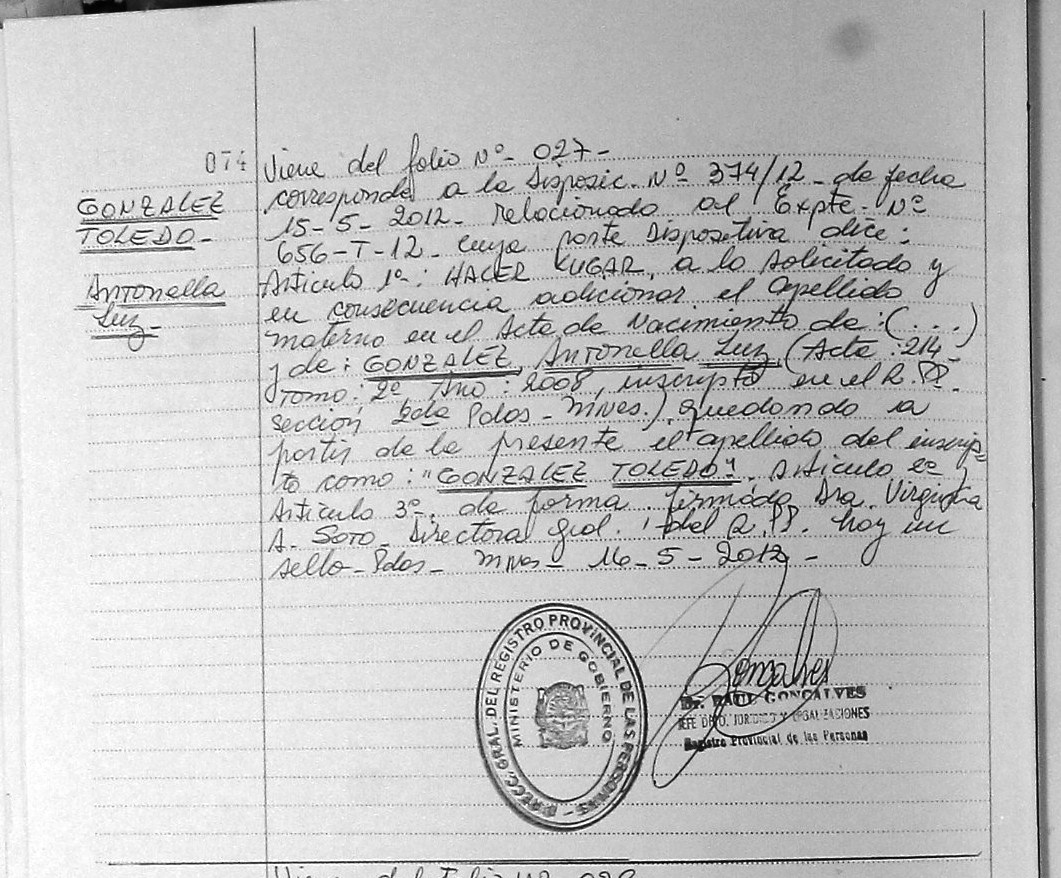 074
GONZALEZ
TOLEDO-
Antonella
Luz-
Viene del folio Nº- 027-
corresponde a la Disposic. Nº 374/12- de fecha
15-5-2012- relacionado al Expte. Nº
656-T-12- cuya parte Dispositiva dice:
Articulo 1º: HACER LUGAR, a lo solicitado y
en consecuencia adicionar el apellido
materno en el Acta de Nacimiento de: (...)
y de: GONZALEZ, Antonella Luz (Acta: 214-
Tomo: 2º Año: 2008, inscripta en el R.PP.
sección 2da Pdas-Mnes.) quedando a
partir de la presente el apellido del inscrip=
to como: "GONZALEZ TOLEDO". Articulo 2º y
Articulo 3º de forma. firmado Dra. Virginia
A. Soto- Directora gral. del R.PP. hoy un
sello- Pdas- Mnes- 16-5-2012-
DIRECC. GRAL. DEL REGISTRO PROVINCIAL DE LAS PERSONAS -
MINISTERIO DE GOBIERNO
Dr. RAUL GONCALVES
JEFE DPTO. JURIDICO Y LEGALIZACIONES
Registro Provincial de las Personas